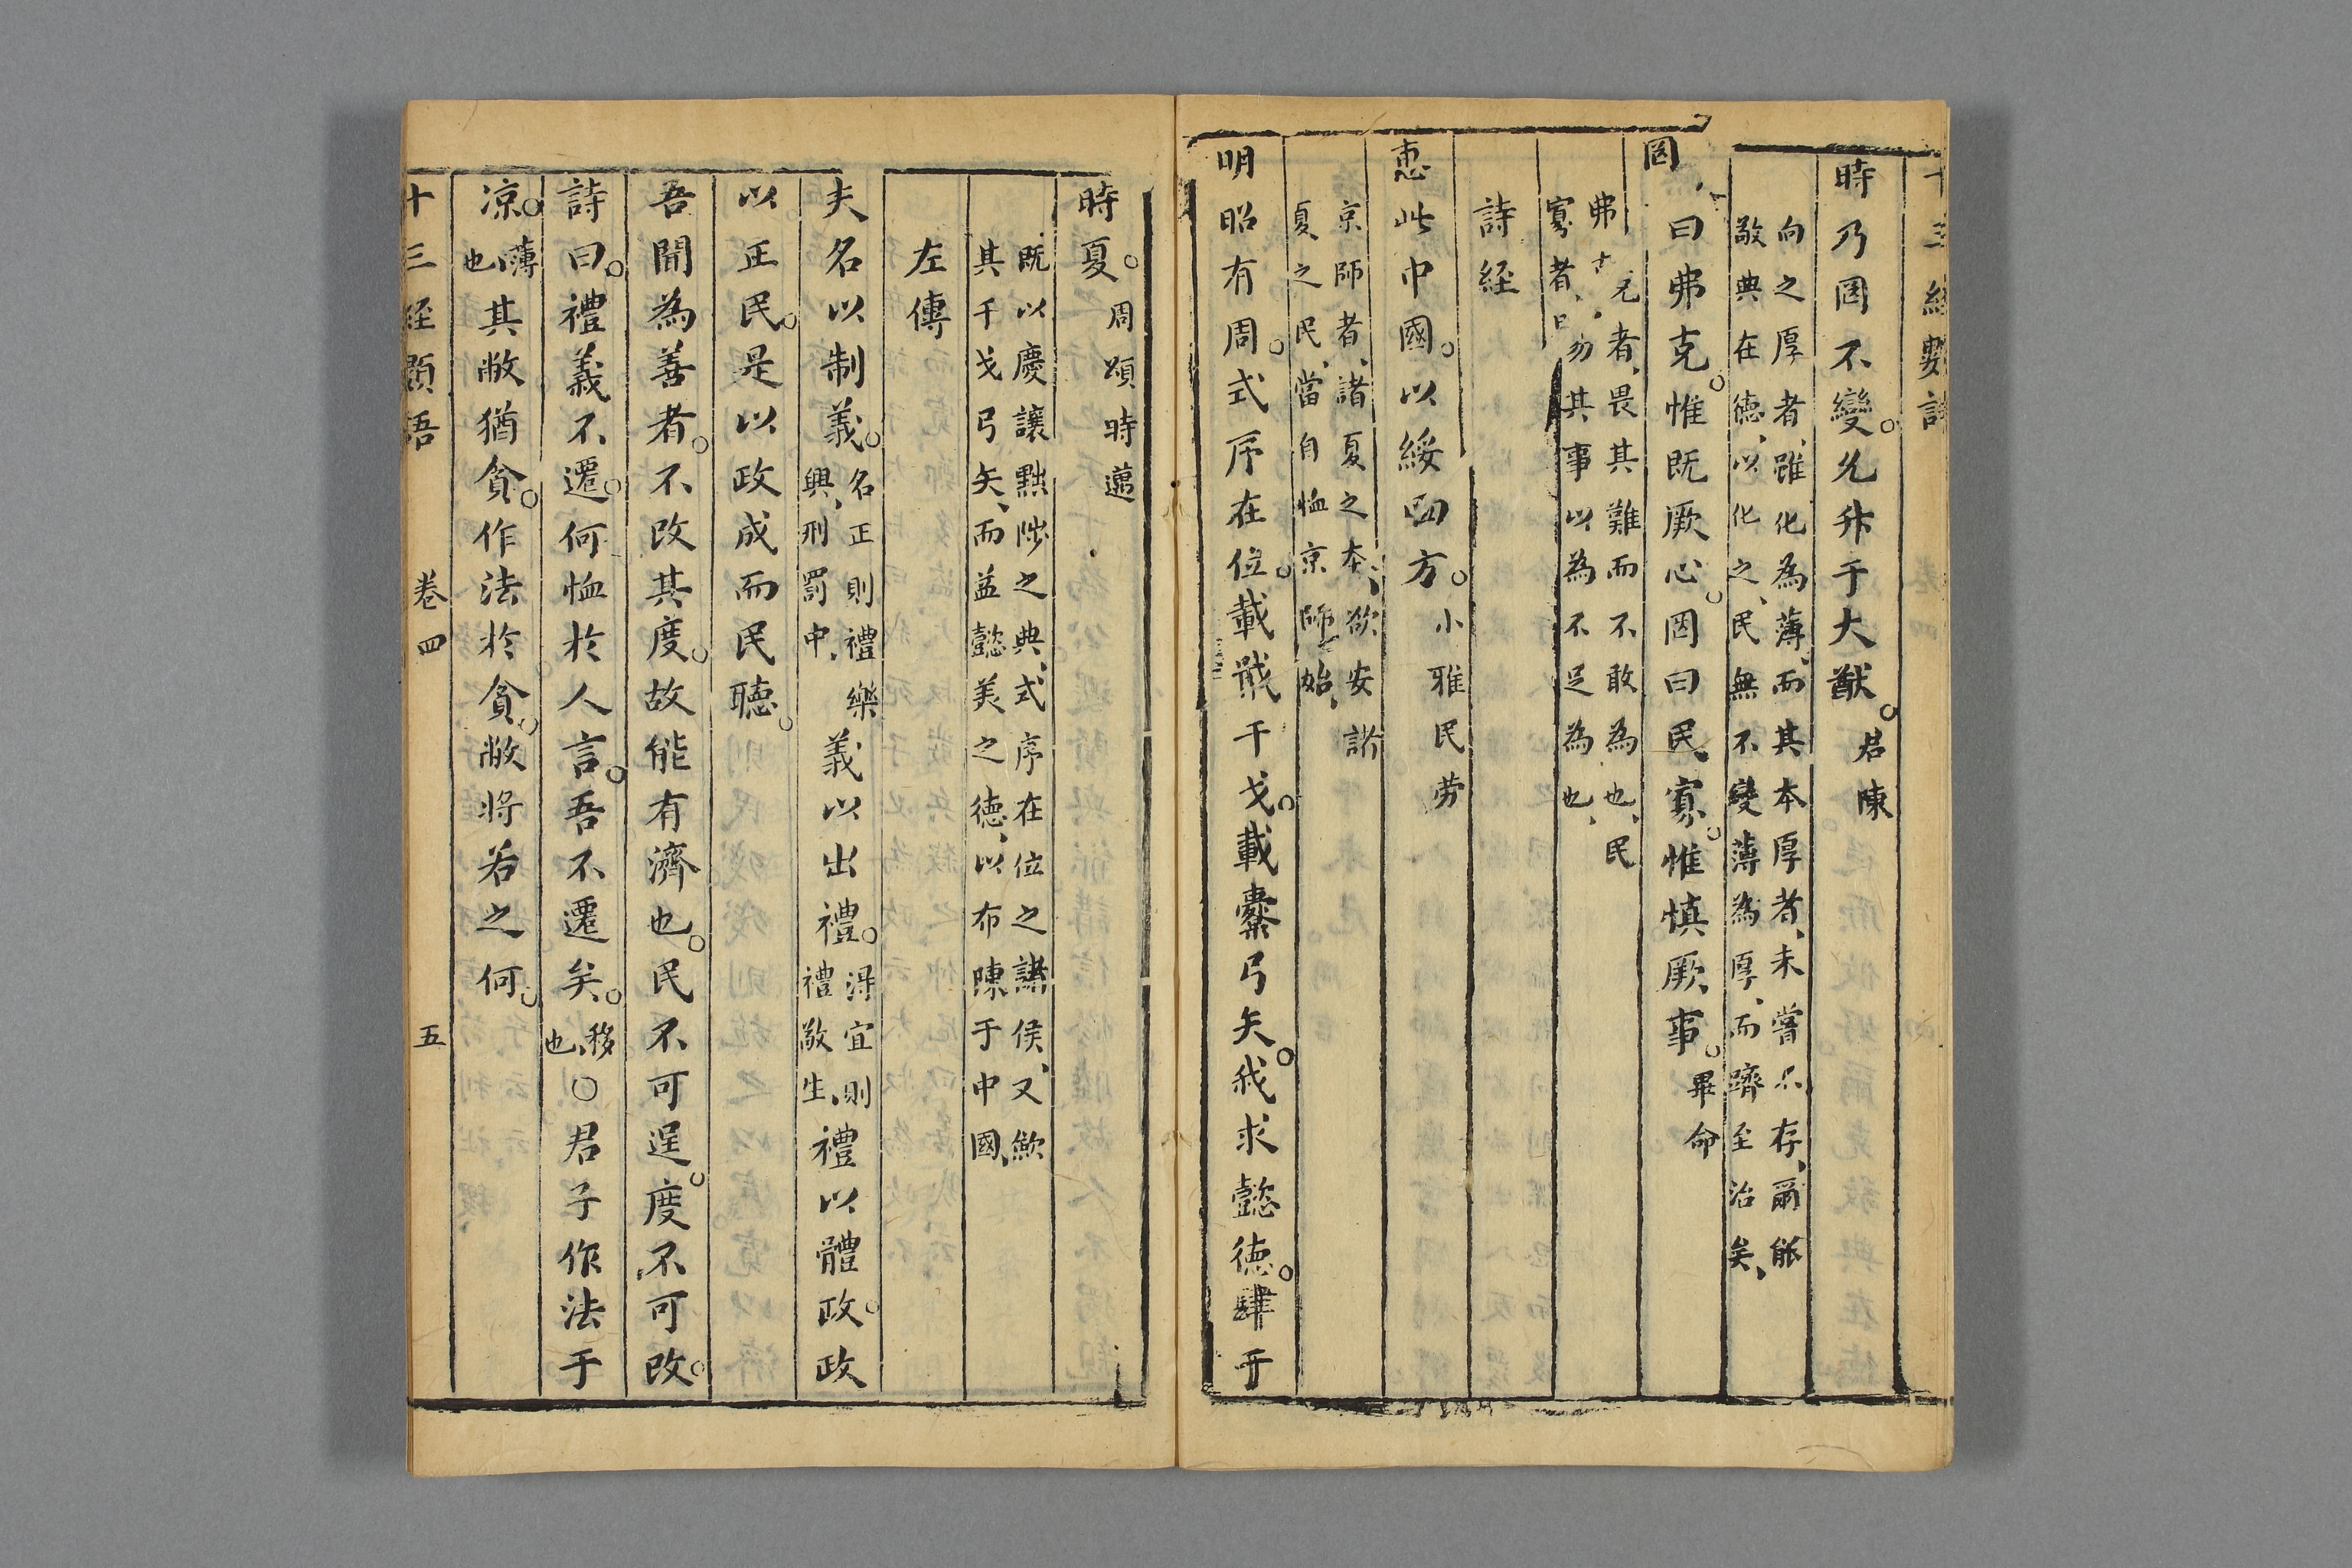 時乃罔不變允升于大猷君陳
向之厚者雖化為薄而其本厚者未嘗不存爾能
敬典在德以化之民無不變薄為厚而躋至治矣
罔曰弗克惟既厥心罔曰民寡惟慎厥事畢命
弗克者畏其難而不敢為也民
寡者曰勿其事以為不足為也
詩経
惠此中國以綏四方小雅民劳
京師者諸夏之本欲安諸
夏之民當自恤京師始
明昭有周式序在位載戢干戈載櫜弓矢我求懿德肆于
時夏周頌時邁
既以慶讓黜陟之典式序在位之諸侯又斂
其千戈弓矢而益懿美之德以布陳于中國
左傳
夫名以制義名正則禮樂興刑罰中義以出禮淂宜則禮敬生禮以體政政
以正民是以政成而民聽
吾聞為善者不改其度故能有濟也民不可逞度不可改
詩曰禮義不遷何恤於人言吾不遷矣移也○君子作法于
凉薄也其敝猶貪作法於貪敝將若之何
十三経顯語 卷四 五